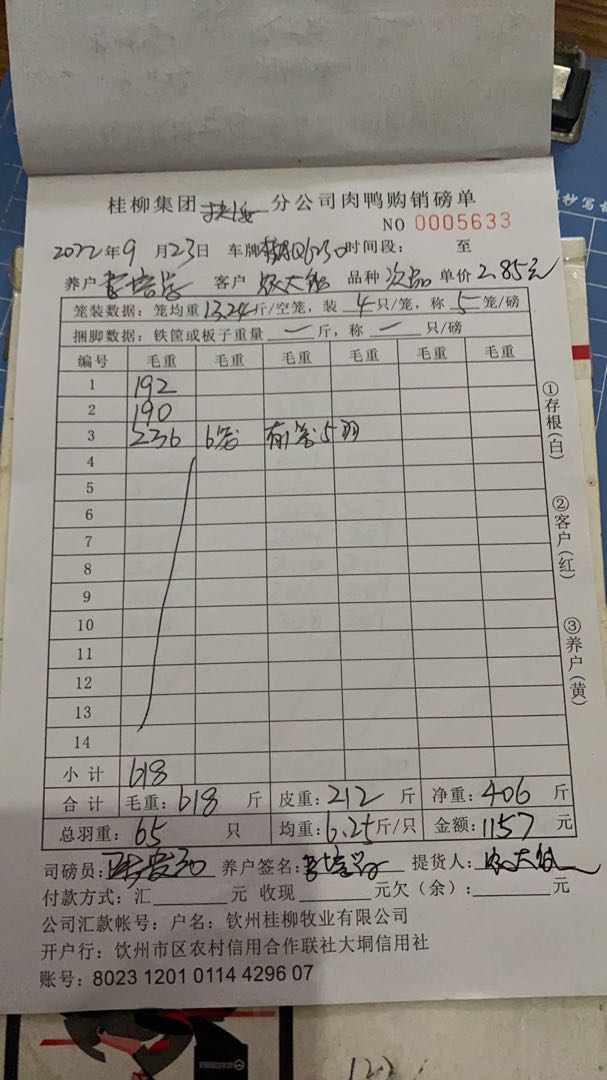 桂柳集团 扶绥 分公司肉鸭购销磅单
NO 0005633
2022年9月23日 车牌 时间段: 至
养户 客户 张大能 品种 次品 单价 2.85元
笼装数据: 笼均重 13.24 斤/空笼, 装 4 只/笼, 称 5 笼/磅
捆脚数据: 铁筐或板子重量 一 斤, 称 一 只/磅
编号 毛重 毛重 毛重 毛重 毛重 毛重
1 192
2 190
3 236 6笼 有1笼5羽
4
5
6
7
8
9
10
11
12
13
14
小计 618
合计 毛重: 618 斤 皮重: 212 斤 净重: 406 斤
总羽重: 65 只 均重: 6.25 斤/只 金额: 1157 元
司磅员: 养户签名: 提货人: 张大能
付款方式: 汇 元 收现 元欠(余): 元
公司汇款帐号: 户名: 钦州桂柳牧业有限公司
开户行: 钦州市区农村信用合作联社大垌信用社
账号: 8023 1201 0114 4296 07
①存根(白)
②客户(红)
③养户(黄)